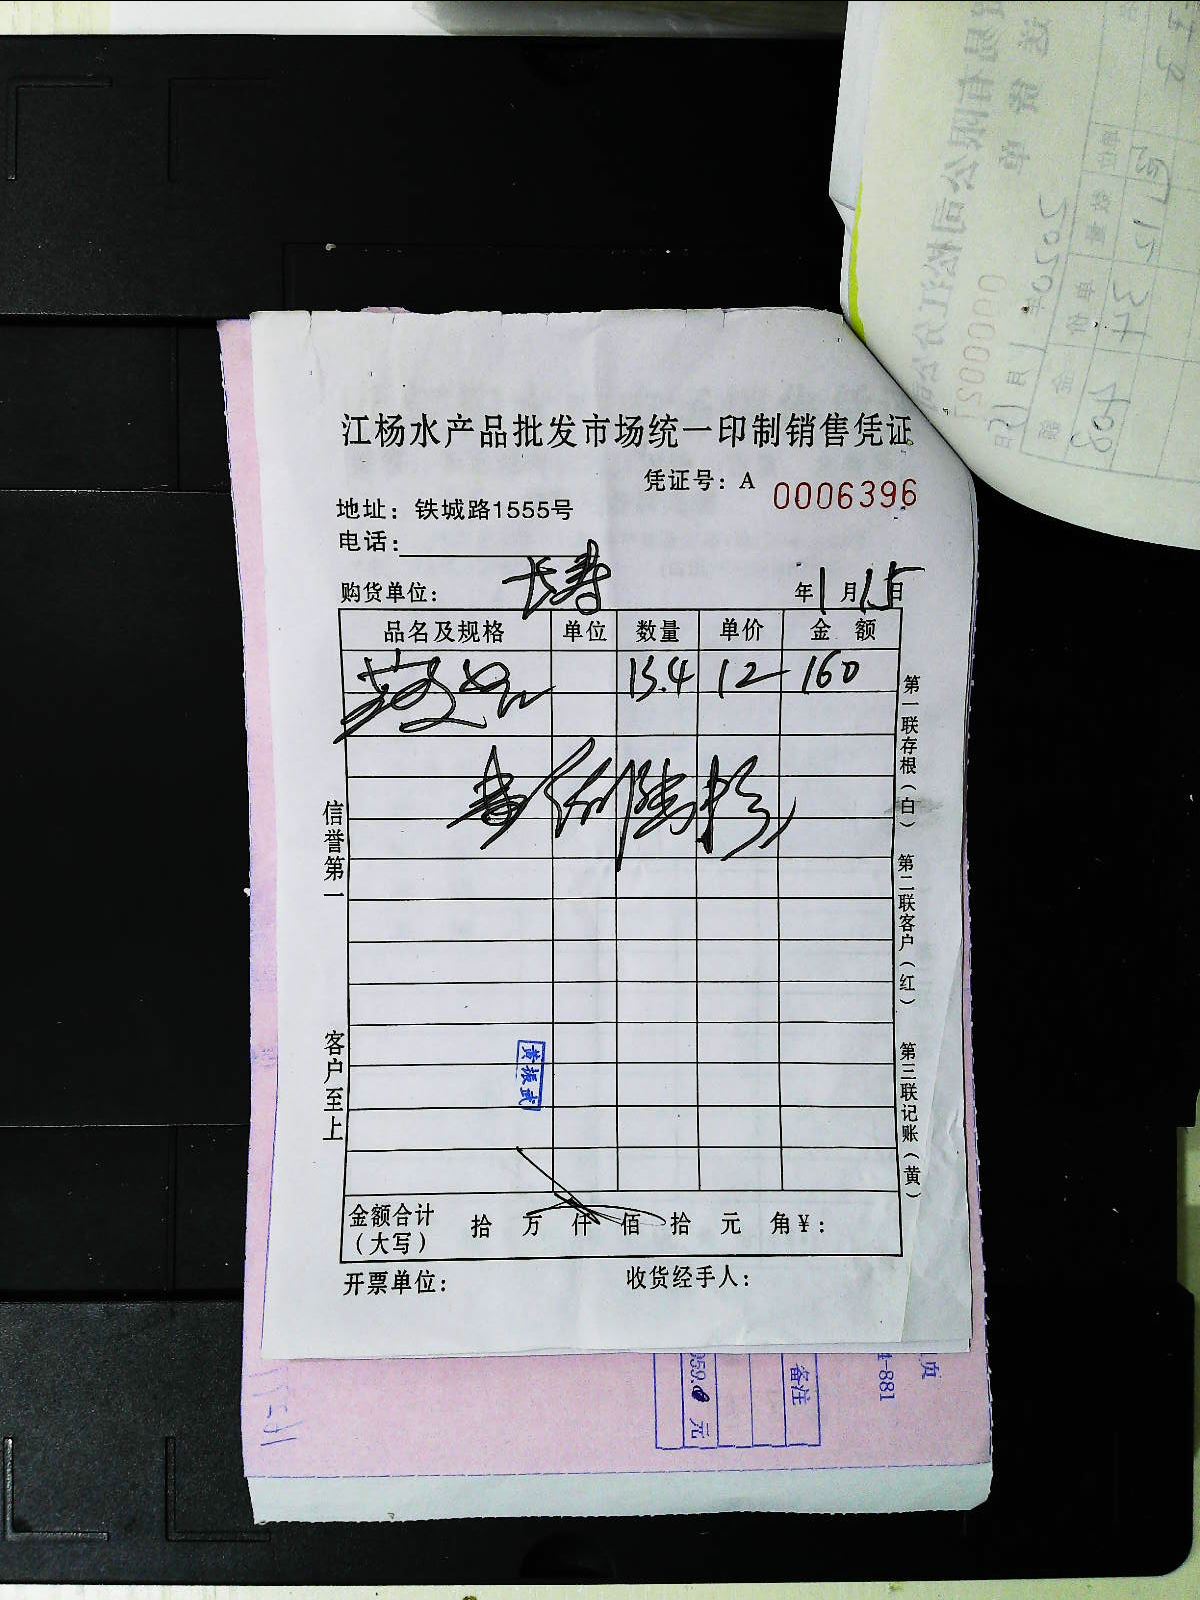 江杨水产品批发市场统一印制销售凭证
凭证号：A 0006396
地址：铁城路1555号
电话：
购货单位：长寿 年1月15日
品名及规格 单位 数量 单价 金额
13.4 12 160
信誉第一
客户至上
第一联存根（白） 第二联客户（红） 第三联记账（黄）
黄振武
金额合计（大写） 拾 万 仟 佰 拾 元 角 ¥：
开票单位： 收货经手人：
备注
元
4-881
页